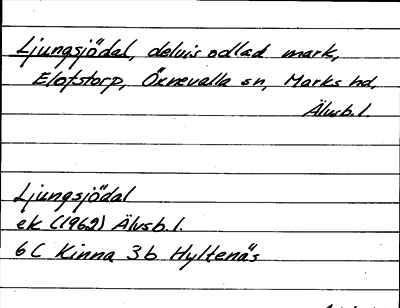 Ljungsjödal, delvis odlad mark,
Elofstorp, Öxnevalla sn, Marks hd,
Älvsb. l.
Ljungsjödal
ek (1962) Älvsb. l.
6 C Kinna 3b Hyltenäs